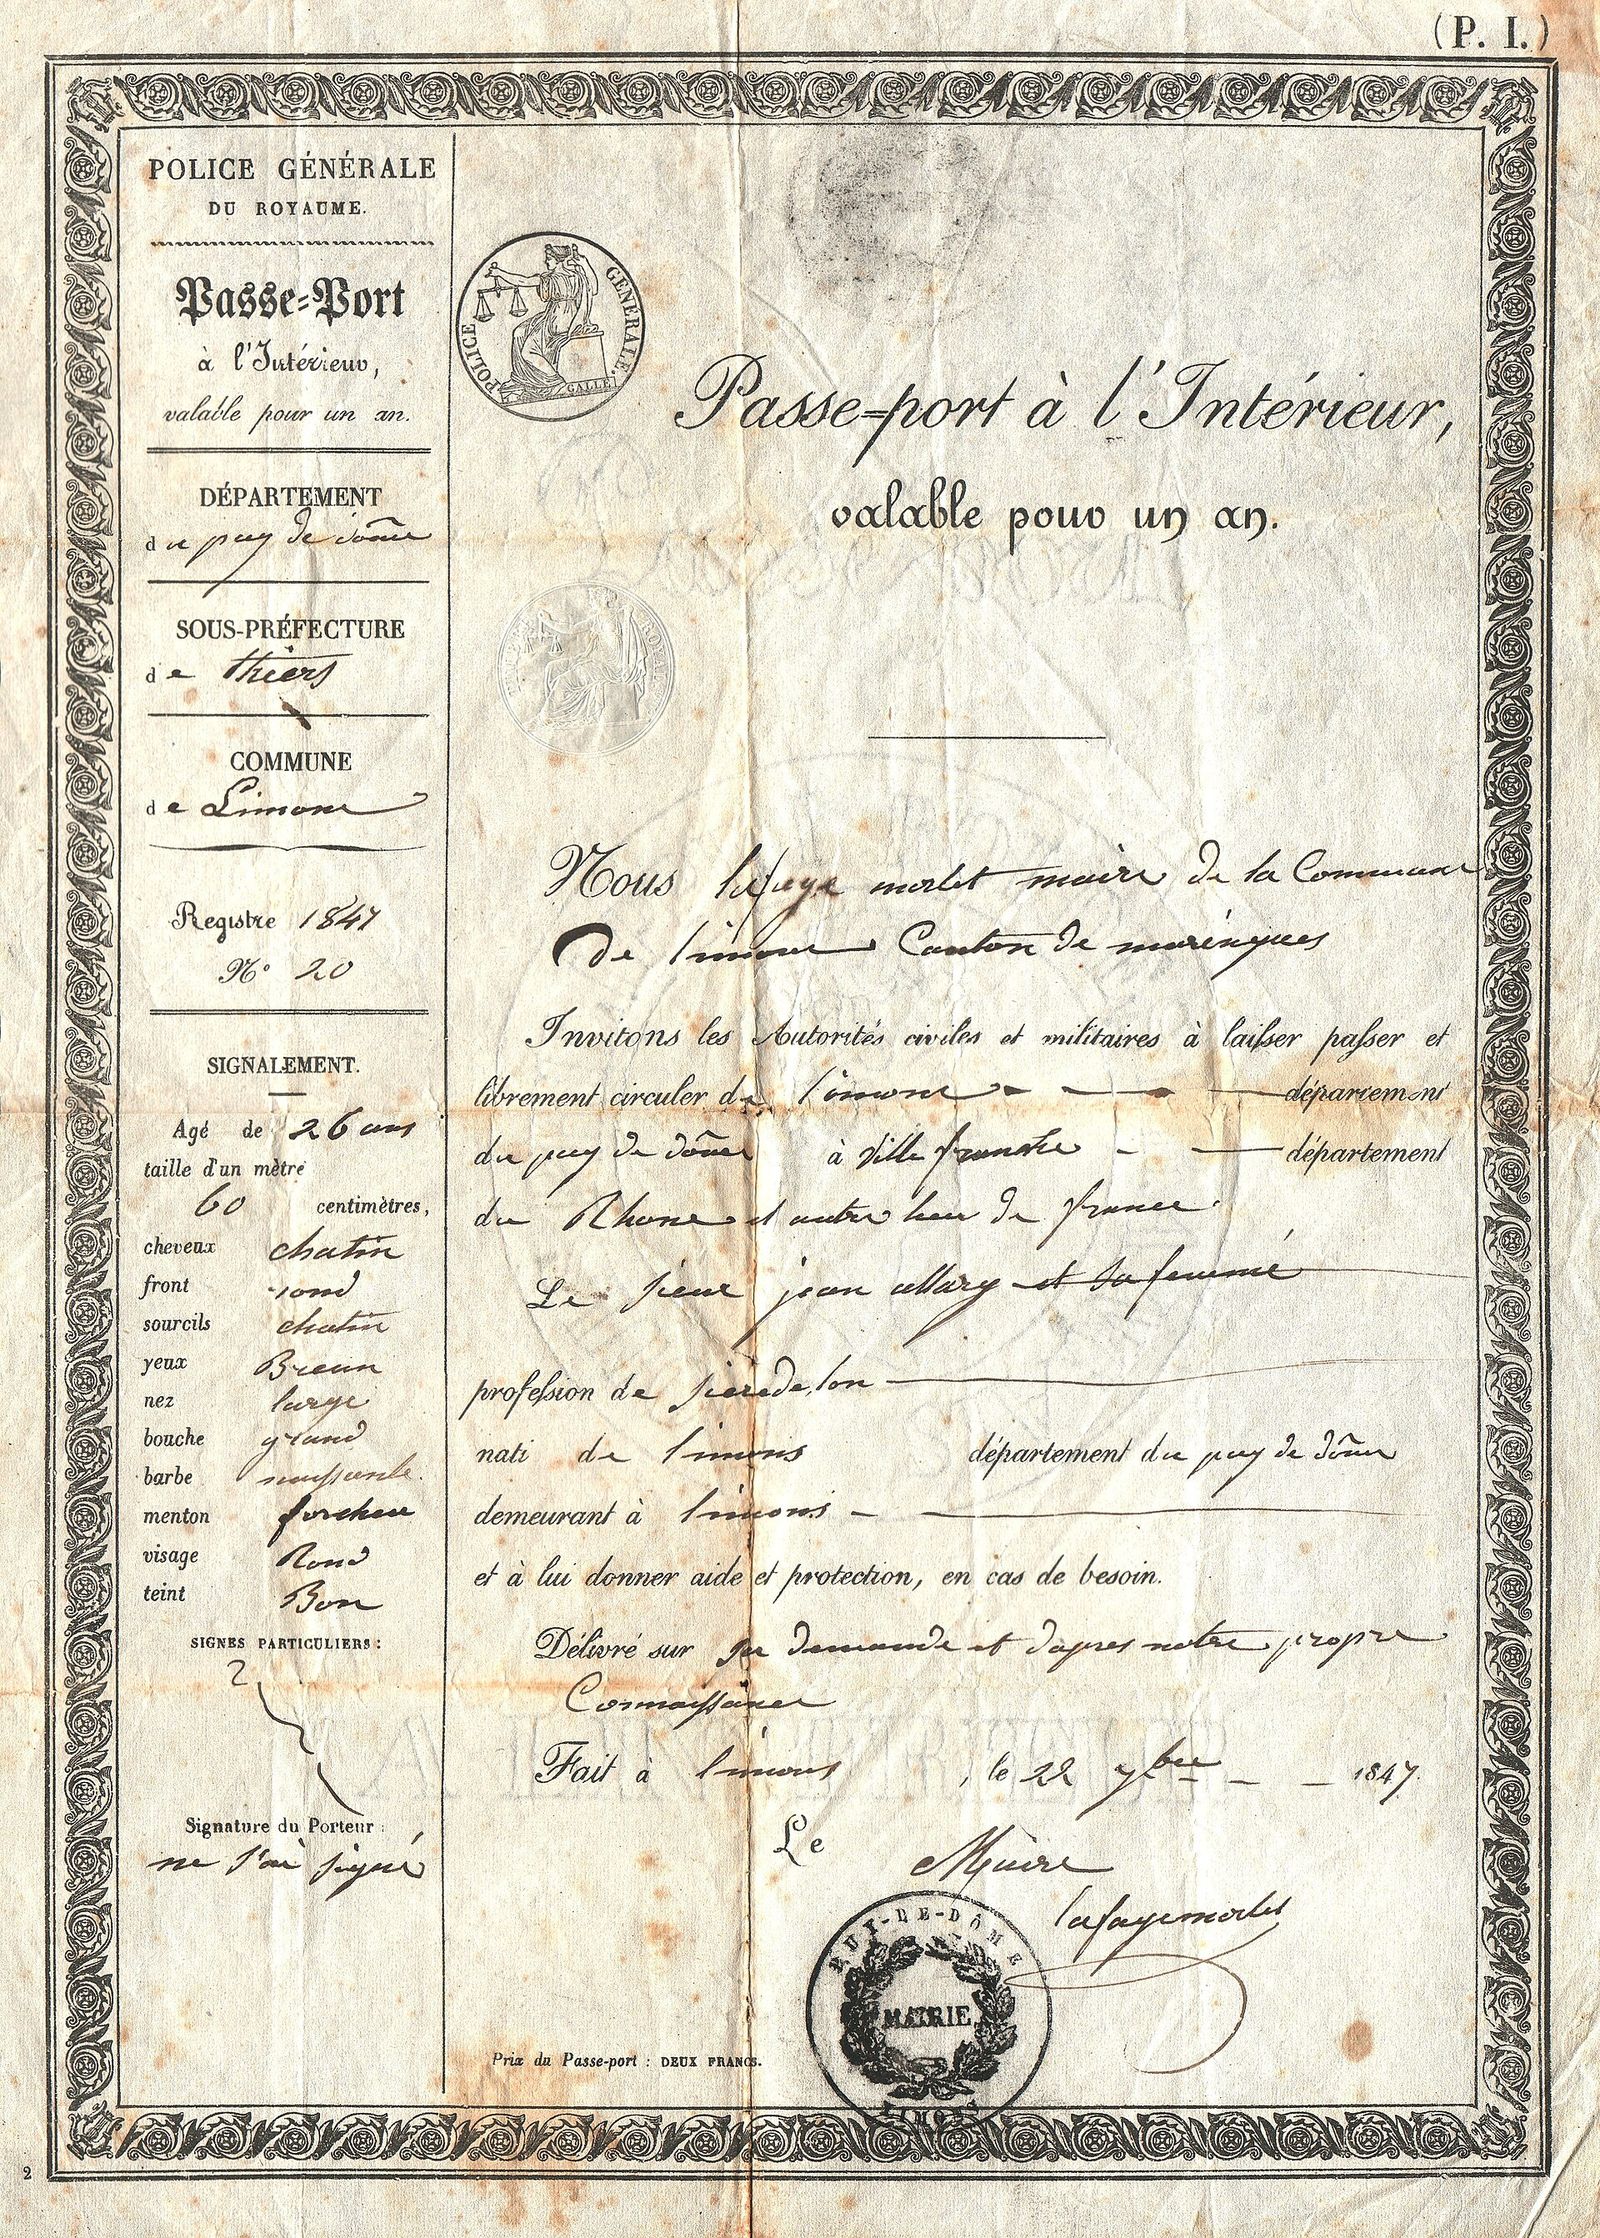 (P. I.)
POLICE GÉNÉRALE
DU ROYAUME.
Passe=Port
à l'Intérieur,
valable pour un an.
DÉPARTEMENT
du puy de dôme
SOUS-PRÉFECTURE
de thiers
COMMUNE
de Limons
Registre 1847
N° 20
SIGNALEMENT.
Agé de 26 ans
taille d'un mètre
60 centimètres,
cheveux chatin
front rond
sourcils chatin
yeux Breun
nez large
bouche grand
barbe naissante
menton
visage Rond
teint Bon
SIGNES PARTICULIERS :
Signature du Porteur :
ne s'ai signé
POLICE GÉNÉRALE.
GALLE
Passe=port à l'Intérieur,
valable pour un an.
Nous lafaye morlet maire de la Commune
De limons Canton de maringues
Invitons les Autorités civiles et militaires à laisser passer et
librement circuler de limons département
du puy de dôme à Ville franche département
du Rhone et autre lieu de france
Le sieur jean allary et sa femme
profession de
nati de limons département du puy de dôme
demeurant à limons
et à lui donner aide et protection, en cas de besoin.
Délivré sur sa demande et dapres notre propre
Connaissance
Fait à limons, le 22 7bre 1847.
Le Maire
lafayemorlet
PUY-DE-DÔME
MAIRIE
LIMONS
Prix du Passe-port : DEUX FRANCS.
2